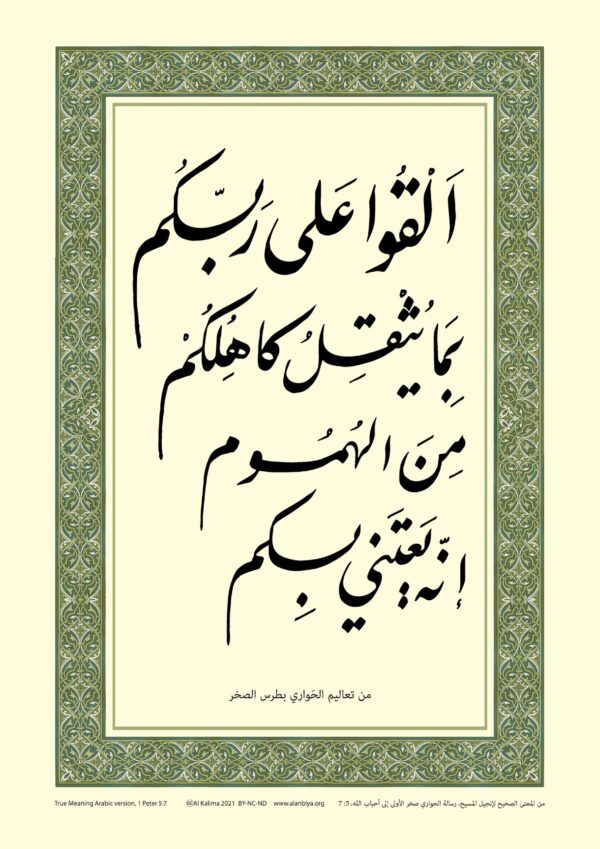 اَلْقُوا عَلى رَبّكُم
بِمَا يُثْقِلُ كاهِلكُمْ
مِنَ الهُمُوم
إنّه يَعتَني بِكم
من تعاليم الحَواري بطرس الصخر
True Meaning Arabic version, 1 Peter 5:7 Al Kalima 2021 BY-NC-ND www.alanbiya.org من المعنى الصحيح لإنجيل المسيح، رسالة الحواري صخر الأولى إلى أحباب الله، 5: 7